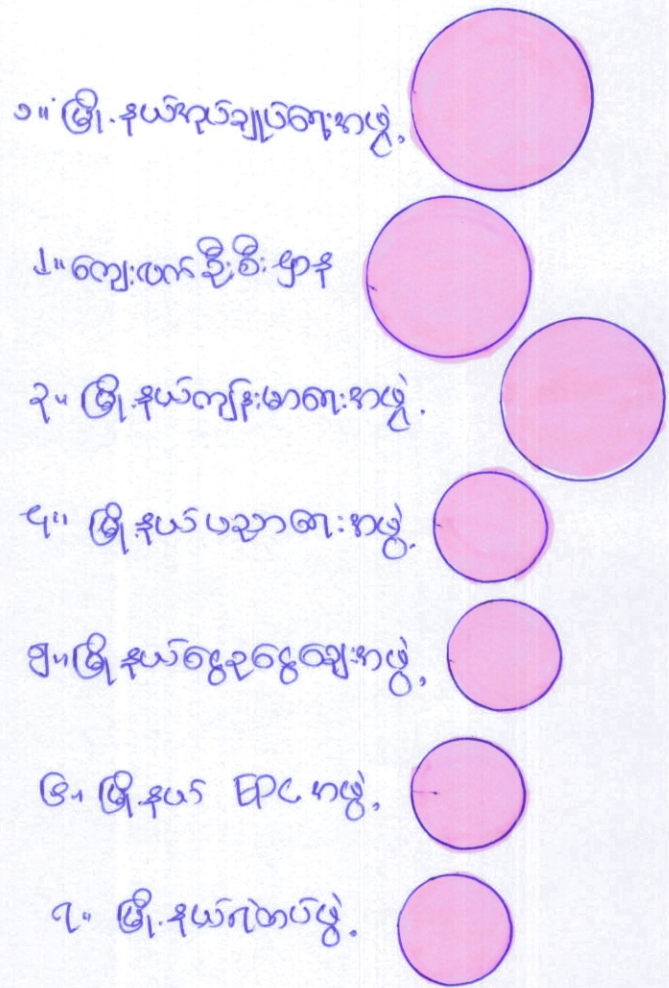 ၁။ မြို့နယ်အုပ်ချုပ်ရေးအဖွဲ့
၂။ ကျေးလက်ဦးစီးဌာန
၃။ မြို့နယ်ကျန်းမာရေးအဖွဲ့
၄။ မြို့နယ်ပညာရေးအဖွဲ့
၅။ မြို့နယ်ငွေစုငွေချေးအဖွဲ့
၆။ မြို့နယ် EPC အဖွဲ့
၇။ မြို့နယ်ရဲတပ်ဖွဲ့